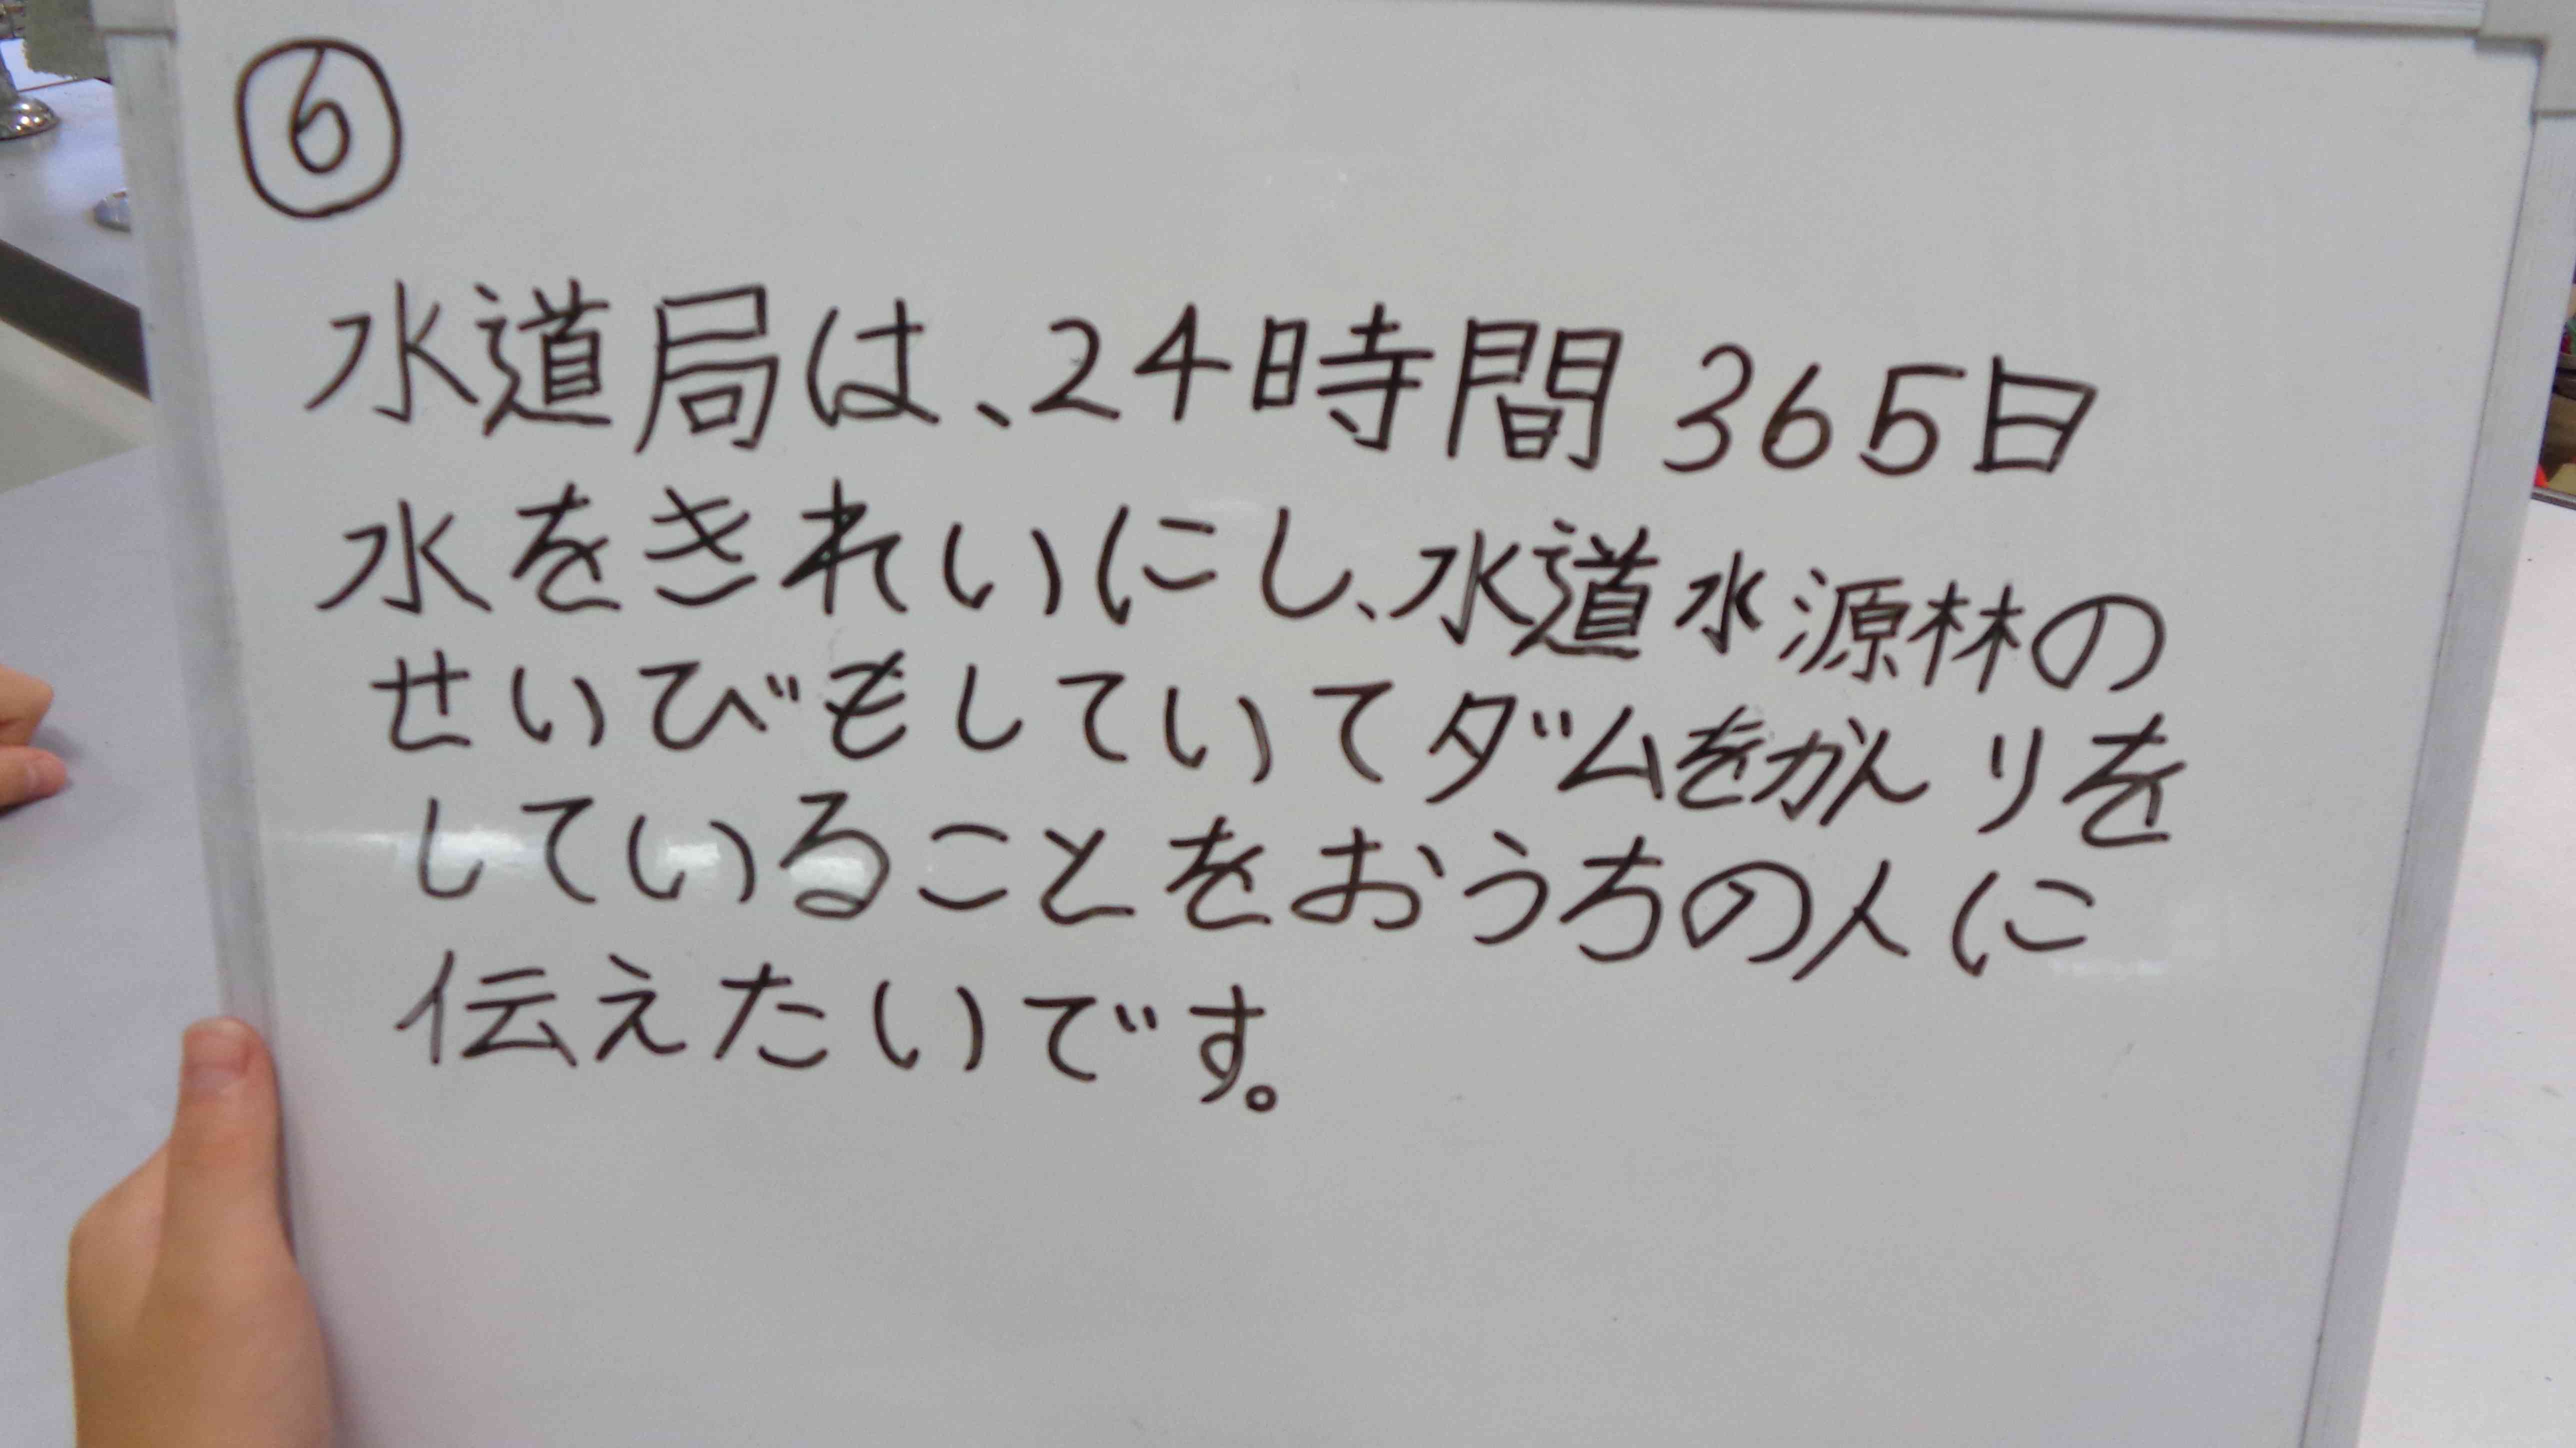 ⑥
水道局は、24時間 365日
水をきれいにし、水道水源林の
せいびもしていてダムをかんりを
していることをおうちの人に
伝えたいです。